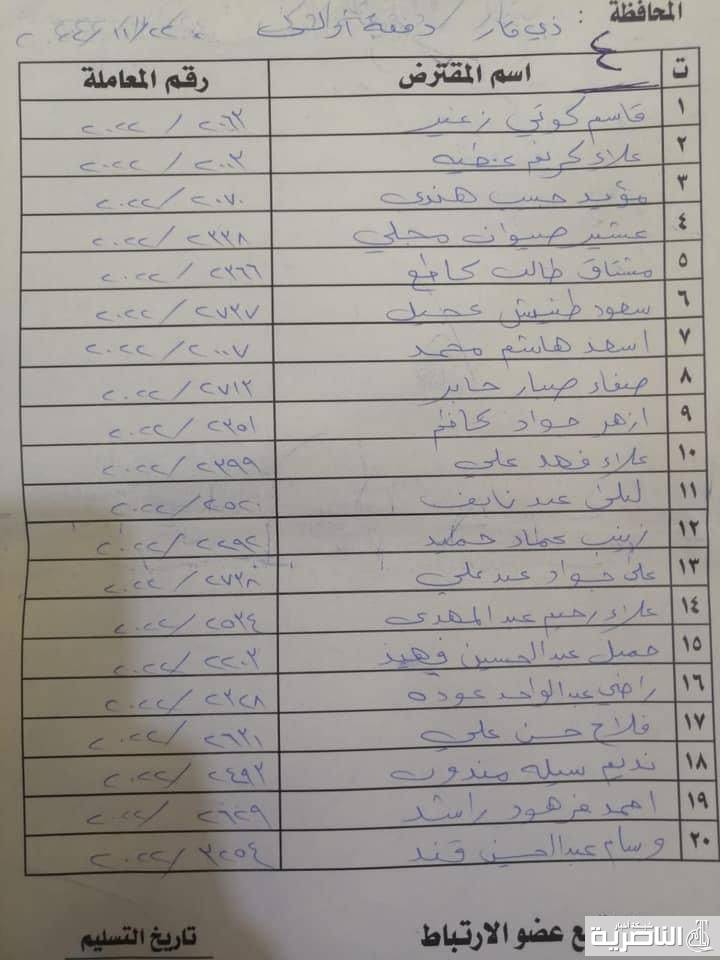 المحافظة : ذي قار / دفعة
٤
ت اسم المقترض رقم المعاملة
١ قاسم كوتي زغير ٢٠٦٣ / ٢٠٢٢
٢ علاء كريم عطيه ٢٠٠٣ / ٢٠٢٢
٣ مؤيد حبيب هندي ٢٠٧٠ / ٢٠٢٢
٤ عشير صيوان مجلي ٢٣٣٨ / ٢٠٢٢
٥ مشتاق طالب كاطع ٢٣٦٦ / ٢٠٢٢
٦ سعود طنيش عجيل ٢٧٣٧ / ٢٠٢٢
٧ اسعد هاشم محمد ٢٠٠٧ / ٢٠٢٢
٨ صفاء صبار جابر ٢٧١٣ / ٢٠٢٢
٩ ازهر جواد كاظم ٢٣٥١ / ٢٠٢٢
١٠ علاء فهد علي ٢٣٩٩ / ٢٠٢٢
١١ ليلى عبد نايف ٢٥٢٠ / ٢٠٢٢
١٢ زينب عماد حميد ٢٢٩٢ / ٢٠٢٢
١٣ علي جواد عبد علي ٢٧٣٨ / ٢٠٢٢
١٤ علاء رحيم عبد المهدي ٢٥٣٤ / ٢٠٢٢
١٥ جميل عبد الحسين فهيد ٢٢٠٣ / ٢٠٢٢
١٦ راضي عبد الواحد عوده ٢٣٢٨ / ٢٠٢٢
١٧ فلاح حسن علي ٢٦٣١ / ٢٠٢٢
١٨ نديم سيله مندوب ٢٤٩٣ / ٢٠٢٢
١٩ احمد فرهود راشد ٢٦٢٩ / ٢٠٢٢
٢٠ وسام عبد الحسين فند ٢٢٥٤ / ٢٠٢٢
عضو الارتباط تاريخ التسليم
الناصرية